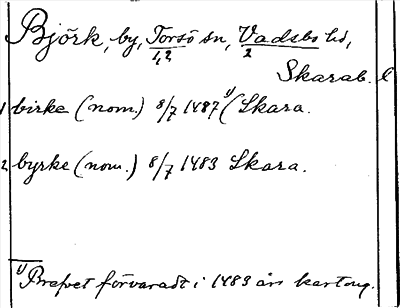 Björk, by, Torsö sn, Vadsbo hd,
1, 2 2
Skarab. l
1 birke (nom.) 8/7 1487 1) ( Skara.
2 byrke (nom.) 8/7 1483 Skara.
1) Brevet förvaradt i 1483 års kartong.